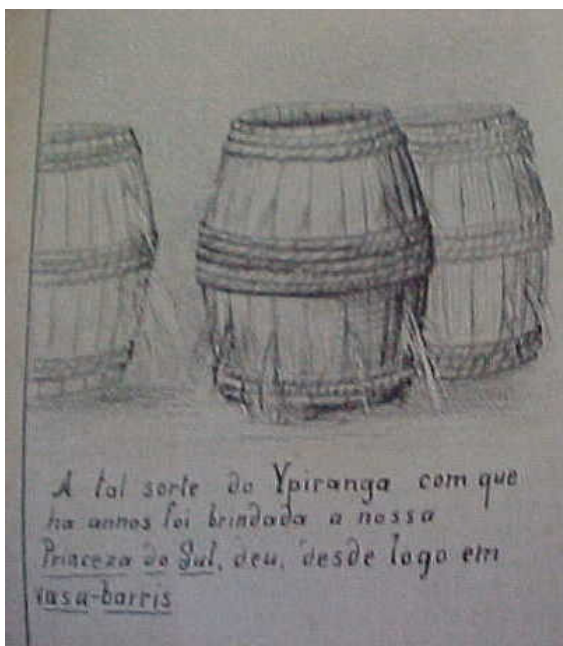 A tal sorte do Ypiranga com que
ha annos foi brindada a nossa
Princeza do Sul, deu, desde logo em
vasa-barris